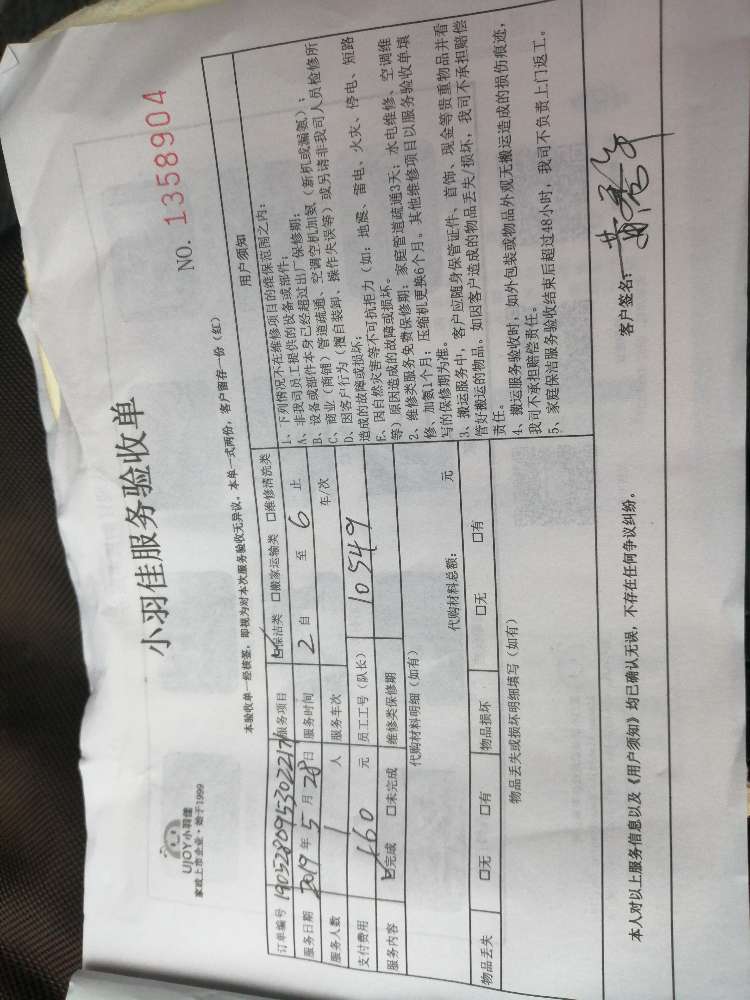 UJOY小羽佳
家政上市企业·始于1999
小羽佳服务验收单
NO. 1358904
本验收单一经核签，即视为对本次服务验收无异议。本单一式两份，客户留存一份（红）
订单编号 190528095302217 服务项目 ☑保洁类 □搬家运输类 □维修清洗类
服务日期 2019年5月28日 服务时间 2 自 至 6 止
服务人数 1 人 服务车次 车/次
支付费用 160 元 员工工号（队长） 10549
服务内容 ☑完成 □未完成 维修类保修期
代购材料明细（如有）
代购材料总额： 元
物品丢失 □无 □有 物品损坏 □无 □有
物品丢失或损坏明细填写（如有）
用户须知
1、下列情况不在维修项目的维保范围之内：
A、非我司员工提供的设备或部件；
B、设备或部件本身已经超过出厂保修期；
C、商业（商铺）管道疏通、空调空机加氨（新机或漏氨）；
D、因客户行为（擅自装卸、操作失误等）或另请非我司人员检修所
造成的故障或损坏；
E、因自然灾害等不可抗拒力（如：地震、雷电、火灾、停电、短路
等）原因造成的故障或损坏。
2、维修类服务免费保修期：家庭管道疏通3天；水电维修、空调维
修、加氨1个月；压缩机更换6个月。其他维修项目以服务验收单填
写的保修期为准。
3、搬运服务中，客户应随身保管证件、首饰、现金等贵重物品并看
管好搬运的物品。如因客户造成的物品丢失/损坏，我司不承担赔偿
责任。
4、搬运服务验收时，如外包装或物品外观无搬运造成的损伤痕迹，
我司不承担赔偿责任。
5、家庭保洁服务验收结束后超过48小时，我司不负责上门返工。
本人对以上服务信息以及《用户须知》均已确认无误，不存在任何争议纠纷。
客户签名：